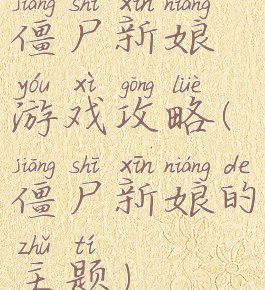 jiāng shī xīn niáng
僵尸新娘
yóu xì gōng lüè
游戏攻略(
jiāng shī xīn niáng de
僵尸新娘的
zhǔ tí
主题)